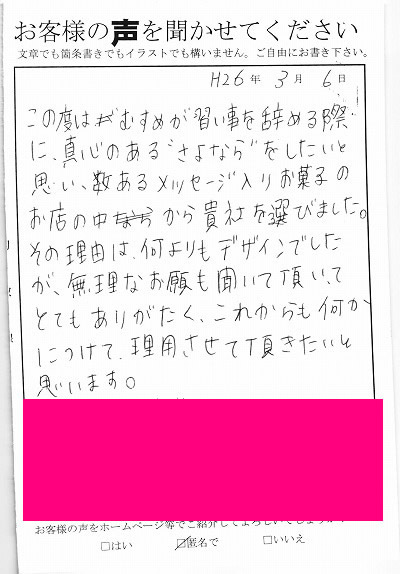 お客様の声を聞かせてください
文章でも箇条書きでもイラストでも構いません。ご自由にお書き下さい。
H26年 3月 6日
この度はむすめが習い事を辞める際
に、真心のある"さよなら"をしたいと
思い、数あるメッセージ入りお菓子の
お店の中から貴社を選びました。
その理由は、何よりもデザインでした
が、無理なお願も聞いて頂いて
とてもありがたく、これからも何か
につけて、理用させて頂きたいと
思います。
お客様の声をホームページ等でご紹介してよろしいでしょうか
□はい ☑匿名で □いいえ